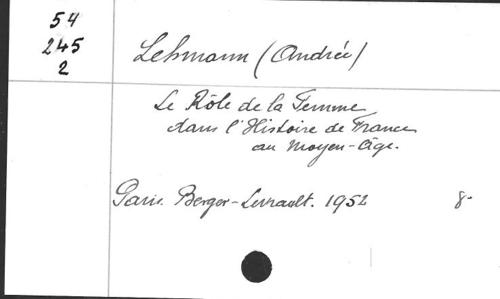 54
245
2
Lehmann (Andrée)
Le Rôle de la Femme
dans l'Histoire de France
au Moyen-Age.
Paris. Berger-Levrault. 1952 8.